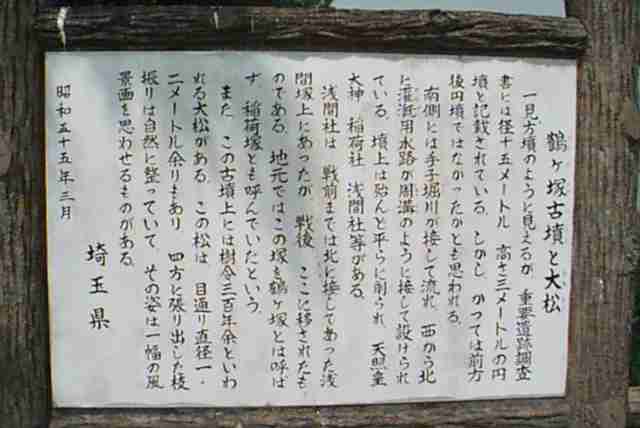 鶴ヶ塚古墳と大松
一見方墳のように見えるが、重要遺跡調査
書には径十五メートル、高さ三メートルの円
墳と記載されている。しかし、かつては前方
後円墳ではなかったかとも思われる。
右側には手子堀川が接して流れ、西から北
に灌漑用水路が周溝のように接して設けられ
ている。墳上は殆んど平らに削られ、天照皇
大神、稲荷社、浅間社等がある。
浅間社は、戦前までは北に接してあった浅
間塚上にあったが、戦後、ここに移されたも
のである。地元ではこの塚を鶴ヶ塚とは呼ば
ず、稲荷塚とも呼んでいたという。
また、この古墳上には樹令三百年余といわ
れる大松がある。この松は、目通り直径一・
二メートル余りもあり、四方に張り出した枝
振りは自然に整っていて、その姿は一幅の風
景画を思わせるものがある。
昭和五十五年三月
埼玉県